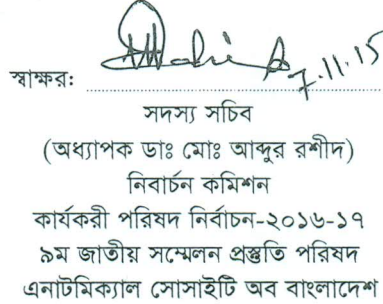 স্বাক্ষর: 7.11.15
সদস্য সচিব
(অধ্যাপক ডাঃ মোঃ আব্দুর রশীদ)
নিবার্চন কমিশন
কার্যকরী পরিষদ নির্বাচন-২০১৬-১৭
৯ম জাতীয় সম্মেলন প্রস্তুতি পরিষদ
এনাটমিক্যাল সোসাইটি অব বাংলাদেশ